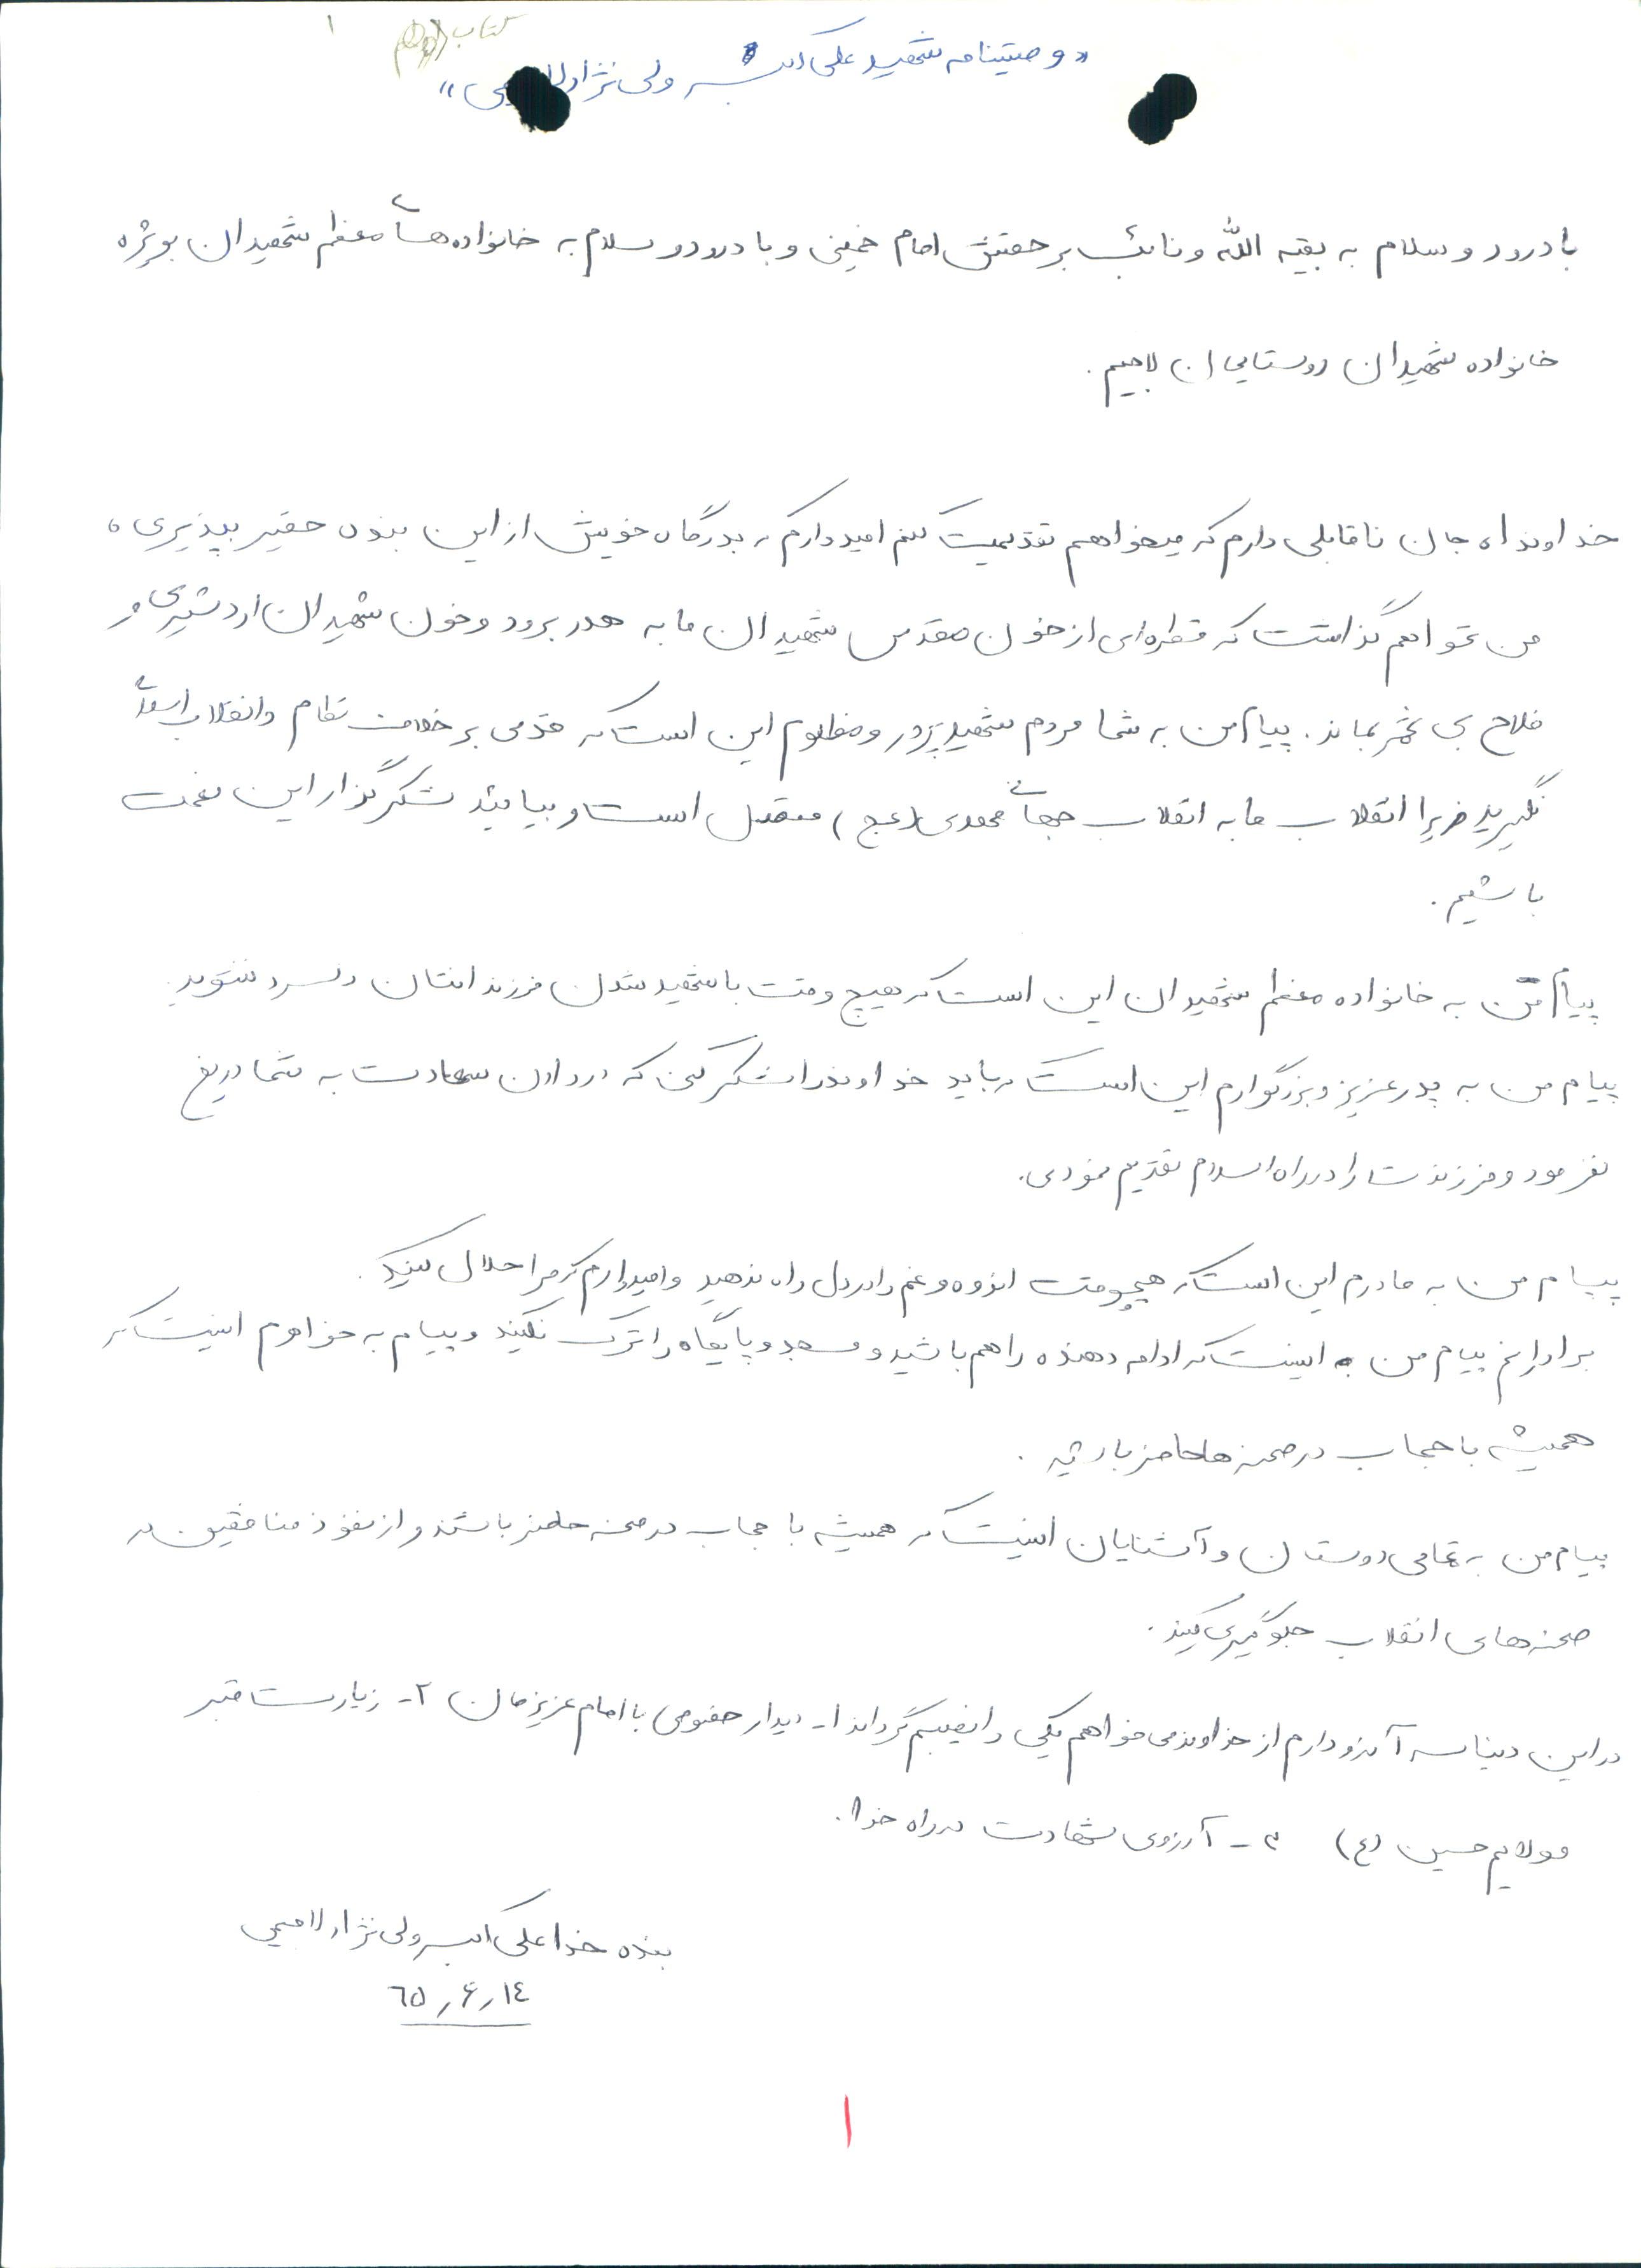 کتاب
۱
«وصیتنامه شهید علی اکبر ولی نژاد لاهیمی»
با درود و سلام به بقیه الله و نائب بر حقش امام خمینی و با درود و سلام به خانواده‌های معظم شهیدان بویژه
خانواده شهیدان روستایی لاهیم.
خداوندا، جان ناقابلی دارم که میخواهم تقدیمت کنم امیدوارم که بدرگاه خویش از این بنده حقیر بپذیری ،
من نخواهم گذاشت که قطره‌ای از خون مقدس شهیدان ما به هدر برود و خون شهیدان اردشیری و
فلاح بی ثمر بماند. پیام من به شما مردم شهیدپرور و مظلوم این است که قدمی بر خلاف نظام و انقلاب اسلامی
نگیرید زیرا انقلاب ما به انقلاب جهانی مهدی (عج) متصل است و بیائید شکرگذار این نعمت
باشیم.
پیام من به خانواده معظم شهیدان این است که هیچ وقت با شهید شدن فرزندانتان دلسرد نشوید.
پیام من به پدر عزیز و بزرگوارم این است که باید خداوند را شکر کنی که در دادن سعادت به شما دریغ
نفرمود و فرزندت را در راه اسلام تقدیم نمودی.
پیام من به مادرم این است که هیچوقت اندوه و غم را در دل راه ندهید و امیدوارم که مرا حلال کنید.
برادرانم پیام من به اینست که ادامه دهنده راهم باشید و مسجد و پایگاه را ترک نکنید و پیام به خواهرم اینست که
همیشه با حجاب در صحنه‌ها حاضر باشید.
پیام من به تمامی دوستان و آشنایان اینست که همیشه با حجاب در صحنه حاضر باشند و از نفوذ منافقین در
صحنه‌های انقلاب جلوگیری کنند.
در این دنیا سه آرزو دارم از خداوند می خواهم یکی را نصیبم گرداند ۱- دیدار خصوصی با امام عزیزمان ۲- زیارت قبر
مولایم حسین (ع) ۳- آرزوی شهادت در راه خدا.
بنده خدا علی اکبر ولی نژاد لاهیمی
۶۵٫۶٫۱۴
۱